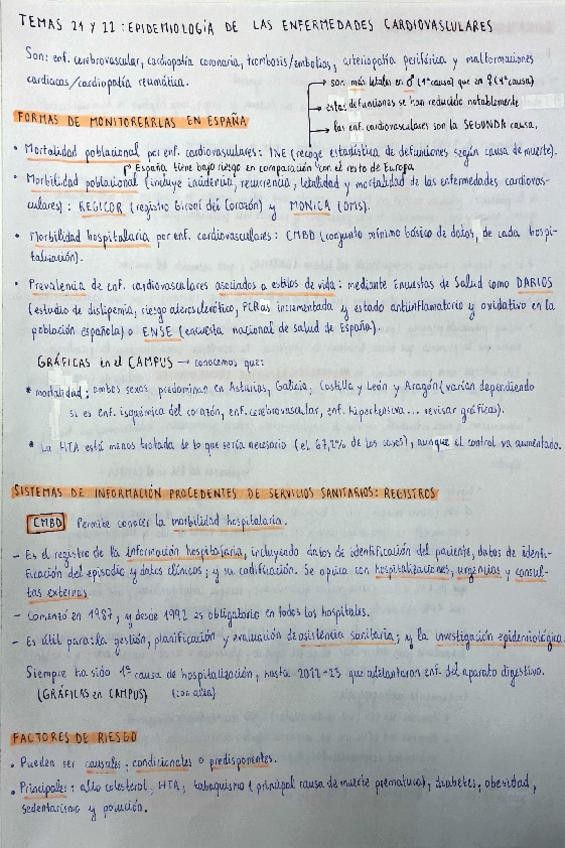 TEMAS 21 Y 22: EPIDEMIOLOGÍA DE LAS ENFERMEDADES CARDIOVASCULARES
Son: enf. cerebrovascular, cardiopatía coronaria, trombosis/embolias, arteriopatía periférica y malformaciones
cardiacas/cardiopatía reumática.
→ son más letales en ♂ (1ª causa) que en ♀ (4ª causa)
→ estas defunciones se han reducido notablemente
→ las enf. cardiovasculares son la SEGUNDA causa.
FORMAS DE MONITOREARLAS EN ESPAÑA
• Mortalidad poblacional por enf. cardiovasculares: INE (recoge estadística de defunciones según causa de muerte).
España tiene bajo riesgo en comparación con el resto de Europa
• Morbilidad poblacional (incluye incidencia, recurrencia, letalidad y mortalidad de las enfermedades cardiovas-
culares): REGICOR (registro Gironí del Corazón) y MONICA (OMS).
• Morbilidad hospitalaria por enf. cardiovasculares: CMBD (conjunto mínimo básico de datos, de cada hospi-
talización).
• Prevalencia de enf. cardiovasculares asociados a estilos de vida: mediante Encuestas de Salud como DARIOS
(estudio de dislipemia, riesgo aterosclerótico, PCRas incrementada y estado antiinflamatorio y oxidativo en la
población española) o ENSE (encuesta nacional de salud de España).
GRÁFICAS en el CAMPUS → conocemos que:
* mortalidad: ambos sexos predominan en Asturias, Galicia, Castilla y León y Aragón (varían dependiendo
si es enf. isquémica del corazón, enf. cerebrovascular, enf. hipertensiva... revisar gráficas).
* La HTA está menos tratada de lo que sería necesario (el 67,2% de los casos), aunque el control va aumentado.
SISTEMAS DE INFORMACIÓN PROCEDENTES DE SERVICIOS SANITARIOS: REGISTROS
CMBD Permite conocer la morbilidad hospitalaria.
- Es el registro de la información hospitalaria, incluyendo datos de identificación del paciente, datos de identi-
ficación del episodio y datos clínicos; y su codificación. Se aplica con hospitalizaciones, urgencias y consul-
tas externas
- Comenzó en 1987, y desde 1992 es obligatorio en todos los hospitales.
- Es útil para: la gestión, planificación y evaluación de asistencia sanitaria; y la investigación epidemiológica.
Siempre ha sido 1ª causa de hospitalización, hasta 2022-23 que adelantaron enf. del aparato digestivo.
(GRÁFICAS en CAMPUS) (con alta)
FACTORES DE RIESGO
• Pueden ser causales, condicionales o predisponentes.
• Principales: alto colesterol, HTA, tabaquismo (principal causa de muerte prematura), diabetes, obesidad,
sedentarismo y polución.